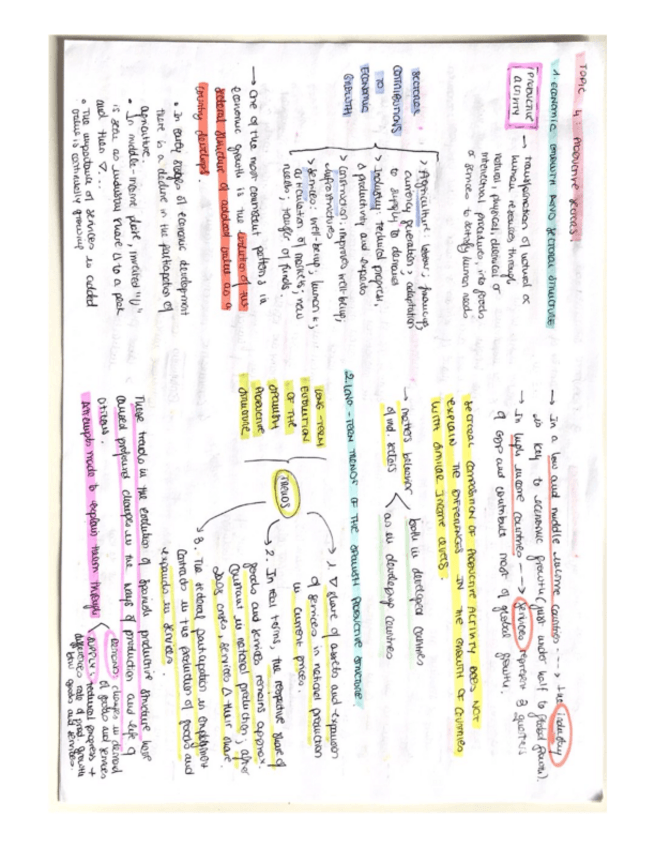 TOPIC 4: PRODUCTIVE SECTORS.
1. ECONOMIC GROWTH AND SECTORAL STRUCTURE
PRODUCTIVE ACTIVITY → transformation of natural or
human resources through
natural, physical, chemical or
intellectual procedures, into goods
or services to satisfy human needs
SECTORAL
CONTRIBUTIONS
TO
ECONOMIC
GROWTH
> Agriculture: labour; financing;
currency generation; adaptation
to supply to demands
> Industry: technical progress,
Δ productivity and exports
> Construction: improves well-being;
infrastructures
> Services: well-being; human K;
articulation of markets; new
needs; transfer of funds.
→ One of the most consistent patterns in
economic growth is the evolution of the
sectoral structure of added value as a
country develops.
• In early stages of economic development
there is a decline in the participation of
agriculture.
• In middle-income phase, inverted "U"
is seen as industrial share Δ to a peak
and then ∇...
• The importance of services in added
value is continually growing
→ In a low and middle income countries --→ the industry
is key to economic growth (just under half to global growth).
→ In high income countries --→ services represent 3 quarters
of GDP and contribute most of global
growth.
SECTORAL COMPOSITION OF PRODUCTIVE ACTIVITY DOES NOT
EXPLAIN THE DIFFERENCES IN THE GROWTH OF COUNTRIES
WITH SIMILAR INCOME LEVELS.
→ matters behavior
of ind. sectors
both in developed countries
as in developing countries
2. LONG-TERM TRENDS OF THE GROWTH PRODUCTIVE STRUCTURE.
LONG-TERM
EVOLUTION
OF THE
SPANISH
PRODUCTIVE
STRUCTURE
TRENDS
1. ∇ share of assets and expansion
of services in national production
in current prices.
2. In real terms, the respective share of
goods and services remains approx.
constant in national production; after
long crises, services Δ their share
3. The sectoral participation in employment
contracts in the production of goods and
expands in services.
These trends in the evolution of Spanish productive structure have
caused profound changes in the ways of production and life of
citizens.
Attempts made to explain them through
DEMAND: changes in demand
of goods and services
SUPPLY: technical progress +
differences rate of prod. growth
btw goods and services.